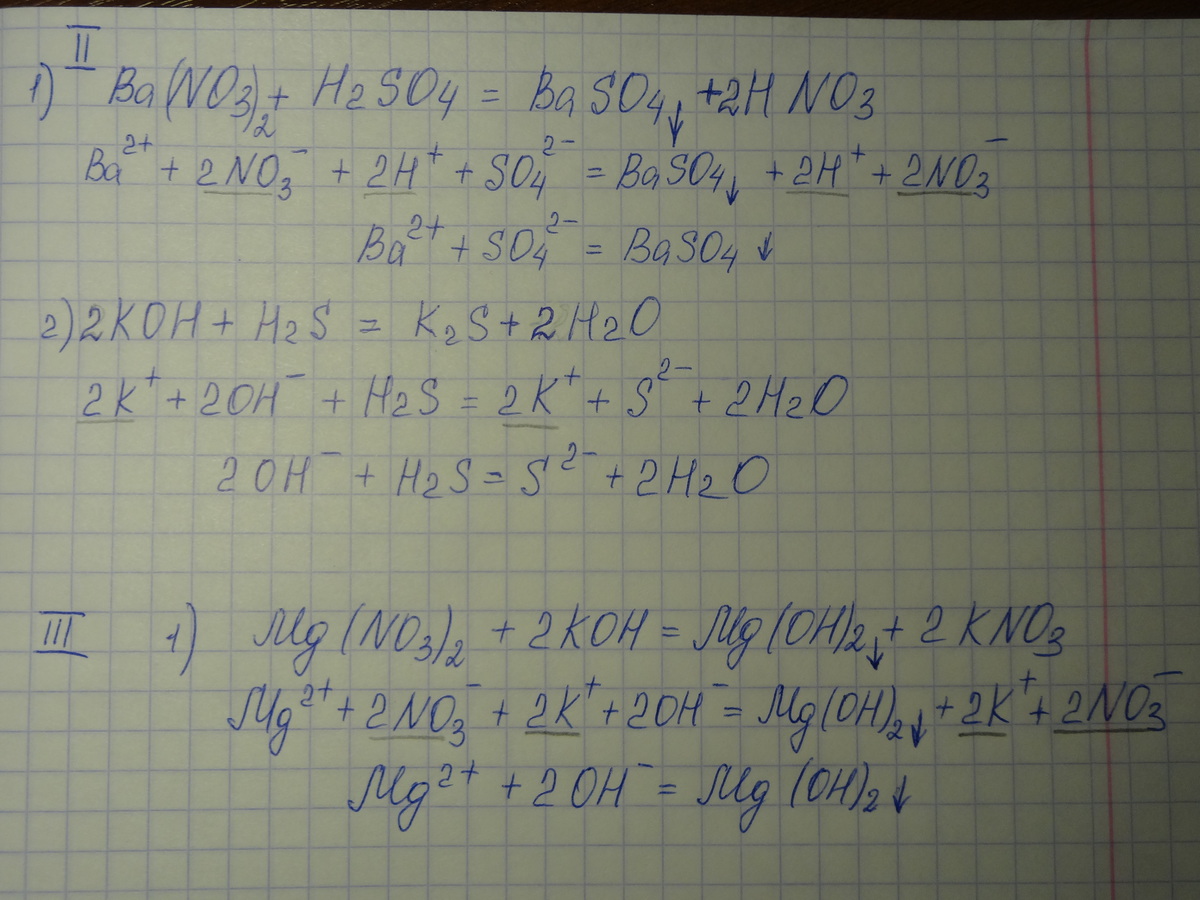 II
1) Ba(NO₃)₂ + H₂SO₄ = BaSO₄↓ + 2HNO₃
Ba²⁺ + 2NO₃⁻ + 2H⁺ + SO₄²⁻ = BaSO₄↓ + 2H⁺ + 2NO₃⁻
Ba²⁺ + SO₄²⁻ = BaSO₄↓
2) 2KOH + H₂S = K₂S + 2H₂O
2K⁺ + 2OH⁻ + H₂S = 2K⁺ + S²⁻ + 2H₂O
2OH⁻ + H₂S = S²⁻ + 2H₂O
III 1) Mg(NO₃)₂ + 2KOH = Mg(OH)₂↓ + 2KNO₃
Mg²⁺ + 2NO₃⁻ + 2K⁺ + 2OH⁻ = Mg(OH)₂↓ + 2K⁺ + 2NO₃⁻
Mg²⁺ + 2OH⁻ = Mg(OH)₂↓